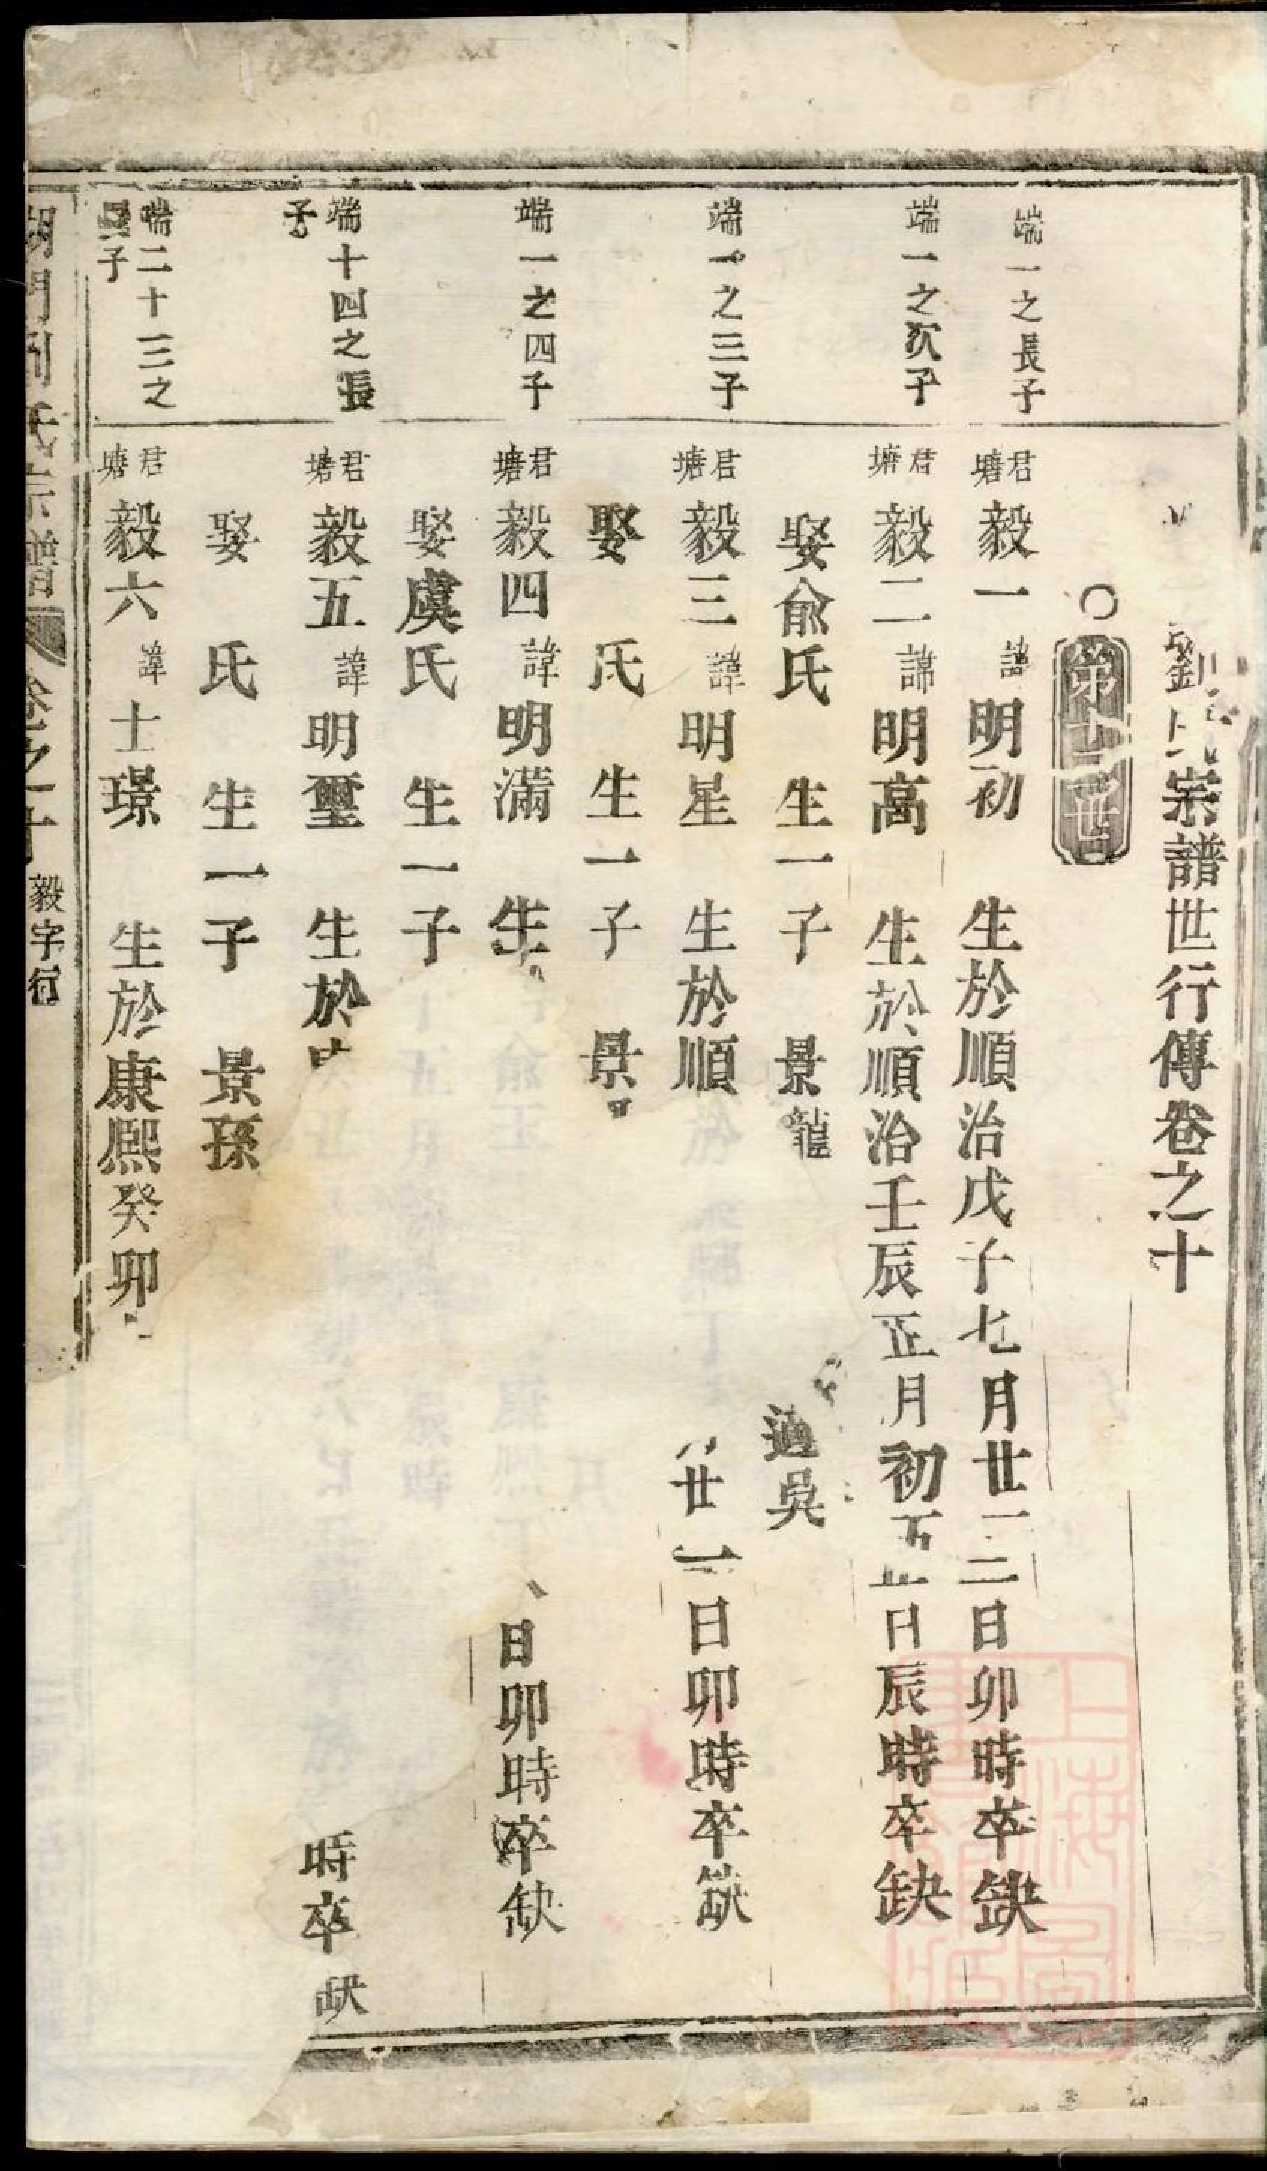 劉氏宗譜世行傳卷之十
○第十二世
端一之長子
君塘毅一諱明初 生於順治戊子七月廿二日卯時卒缺
端一之次子
君塘毅二諱明高 生於順治壬辰正月初五日辰時卒缺
娶俞氏 生一子 景龍 適吳
端一之三子
君塘毅三諱明星 生於順 廿一日卯時卒缺
娶 氏 生一子 景
端一之四子
君塘毅四諱明滿 生 日卯時卒缺
娶虞氏 生一子
端十四之長子
君塘毅五諱明璽 生於 時卒缺
娶 氏 生一子 景孫
端二十三之 子
君塘毅六諱士璟 生於康熙癸卯
門劉氏宗譜 卷之十 毅字行
上海圖書館藏